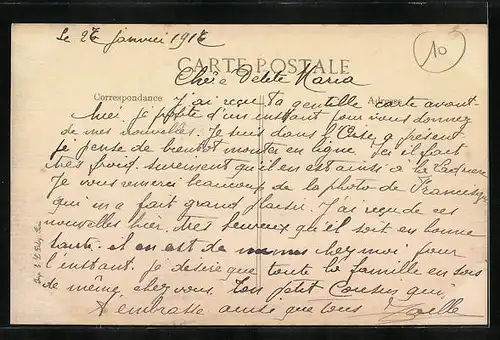 Le 27 janvier 1917
10
CARTE POSTALE
Chère Petite Maria
Correspondance Adresse
J'ai reçu ta gentille carte avant-
hier je profite d'un instant pour vous donner
de mes nouvelles. Je suis dans l'Oise a présent
je pense de bientot monter en ligne. Ici il fait
très froid. surement qu'il en est ainsi à la
Je vous remercie beaucoup de la photo de
qui m'a fait grand plaisir. J'ai reçu de ces
nouvelles hier, très heureux qu'il soit en bonne
santé. et en est de même chez moi pour
l'instant. je désire que toute la famille en sois
de même chez vous. Ton petit Cousin qui
t'embrasse ainsi que tous